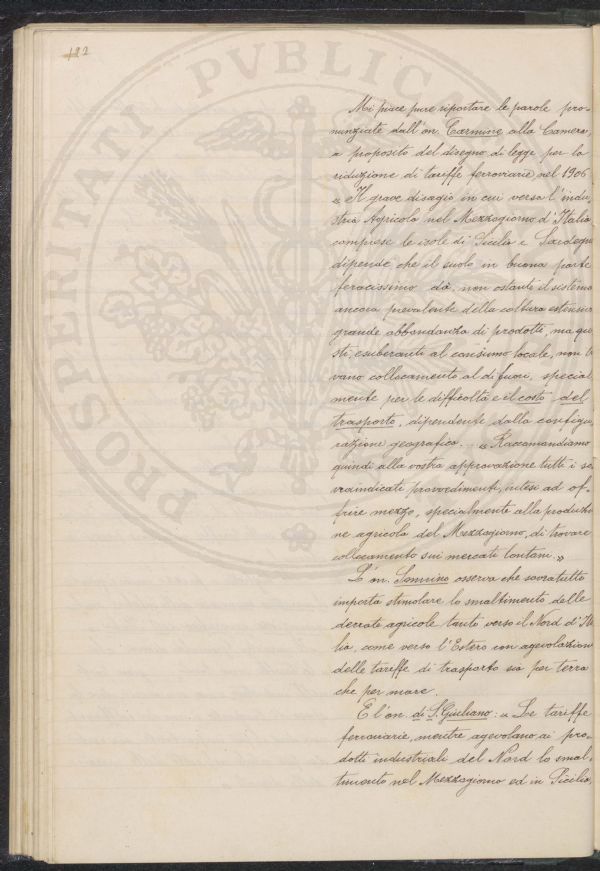 122
Mi piace pure riportare le parole pro-
nunziate dall'on. Carmine alla Camera,
a proposito del disegno di legge per la
riduzione di tariffe ferroviarie nel 1906
« Il grave disagio in cui versa l'indu
stria Agricola nel Mezzogiorno d'Italia
comprese le isole di Sicilia e Sardegna
dipende che il suolo in buona parte
feracissimo dà, non ostante il sistema
ancora prevalente della coltura estensiva
grande abbondanza di prodotti, ma que
sti, esuberanti al consumo locale, non
vano collocamento al di fuori, special
mente per le difficoltà e il costo del
trasporto, dipendente dalla configu
razione geografica. — « Raccomandiamo
quindi alla vostra approvazione tutti i
vraindicati provvedimenti, intesi ad of-
frire mezzo, specialmente alla produzio
ne agricola del Mezzogiorno, di trovare
collocamento sui mercati lontani. »
L'on. Sonnino osserva che sovratutto
importa stimolare lo smaltimento delle
derrate agricole tanto verso il Nord d'Ita
lia, come verso l'Estero con agevolazioni
delle tariffe di trasporto sia per terra
che per mare.
E l'on. di S. Giuliano: « Le tariffe
ferroviarie, mentre agevolano ai pro-
dotti industriali del Nord lo smal-
timento nel Mezzogiorno ed in Sicilia,
PROSPERITATI PVBLIC